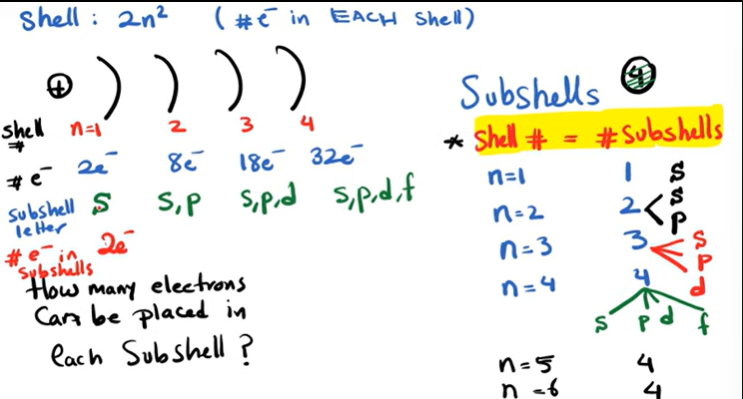 Shell : 2n² ( #e⁻ in EACH Shell)
+
Shell # n=1 2 3 4
# e⁻ 2e⁻ 8e⁻ 18e⁻ 32e⁻
Subshell letter S S,P S,P,d S,P,d,f
# e⁻ in Subshells 2e⁻
How many electrons
Can be placed in
each Subshell ?
Subshells 4
* Shell # = # Subshells
n=1 1 S
n=2 2 S P
n=3 3 S P d
n=4 4
S P d f
n=5 4
n=6 4